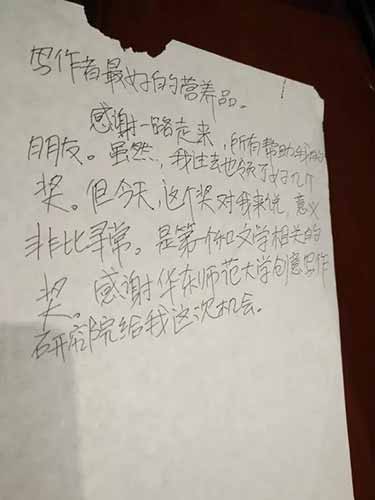 写作者最好的营养品。
感谢一路走来，所有帮助我的
朋友。虽然，我过去也领了好几个
奖。但今天，这个奖对我来说，意义
非比寻常。是第一个和文学相关的
奖。感谢华东师范大学创意写作
研究院给我这次机会。